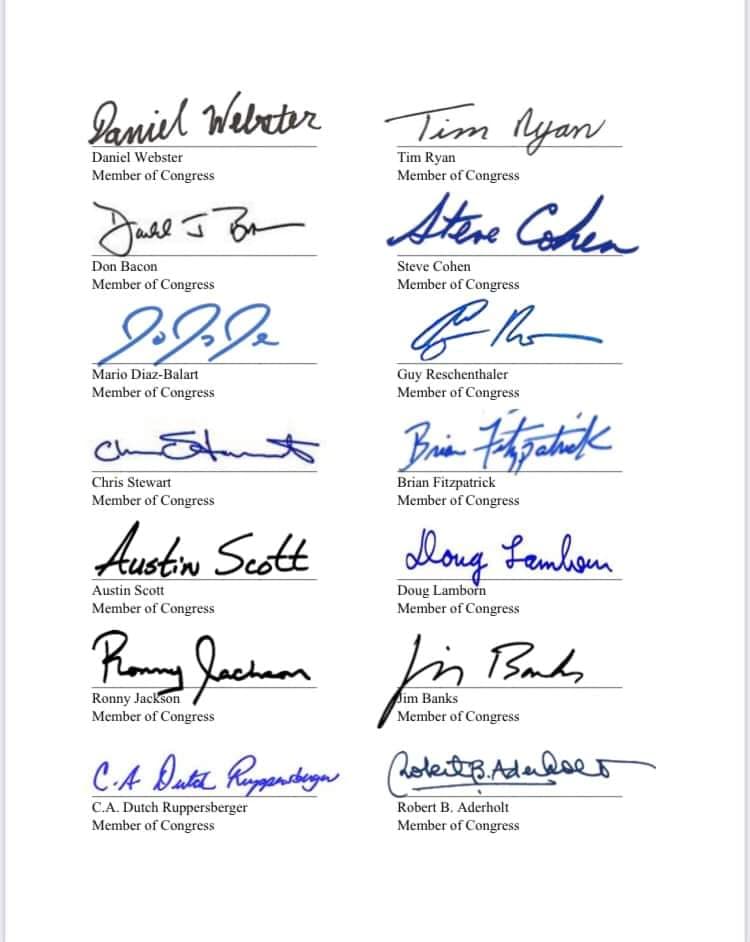 Daniel Webster
Tim Ryan
Daniel Webster
Tim Ryan
Member of Congress
Member of Congress
J B
Steve Cohen
Don Bacon
Steve Cohen
Member of Congress
Member of Congress
Mario Diaz-Balart
Guy Reschenthaler
Member of Congress
Member of Congress
Brian Fitzpatrick
Chris Stewart
Brian Fitzpatrick
Member of Congress
Member of Congress
Austin Scott
Doug Lamborn
Austin Scott
Doug Lamborn
Member of Congress
Member of Congress
Ronny Jackson
Jim Banks
Ronny Jackson
Jim Banks
Member of Congress
Member of Congress
C.A Dutch Ruppersberger
Robert B. Aderholt
C.A. Dutch Ruppersberger
Robert B. Aderholt
Member of Congress
Member of Congress